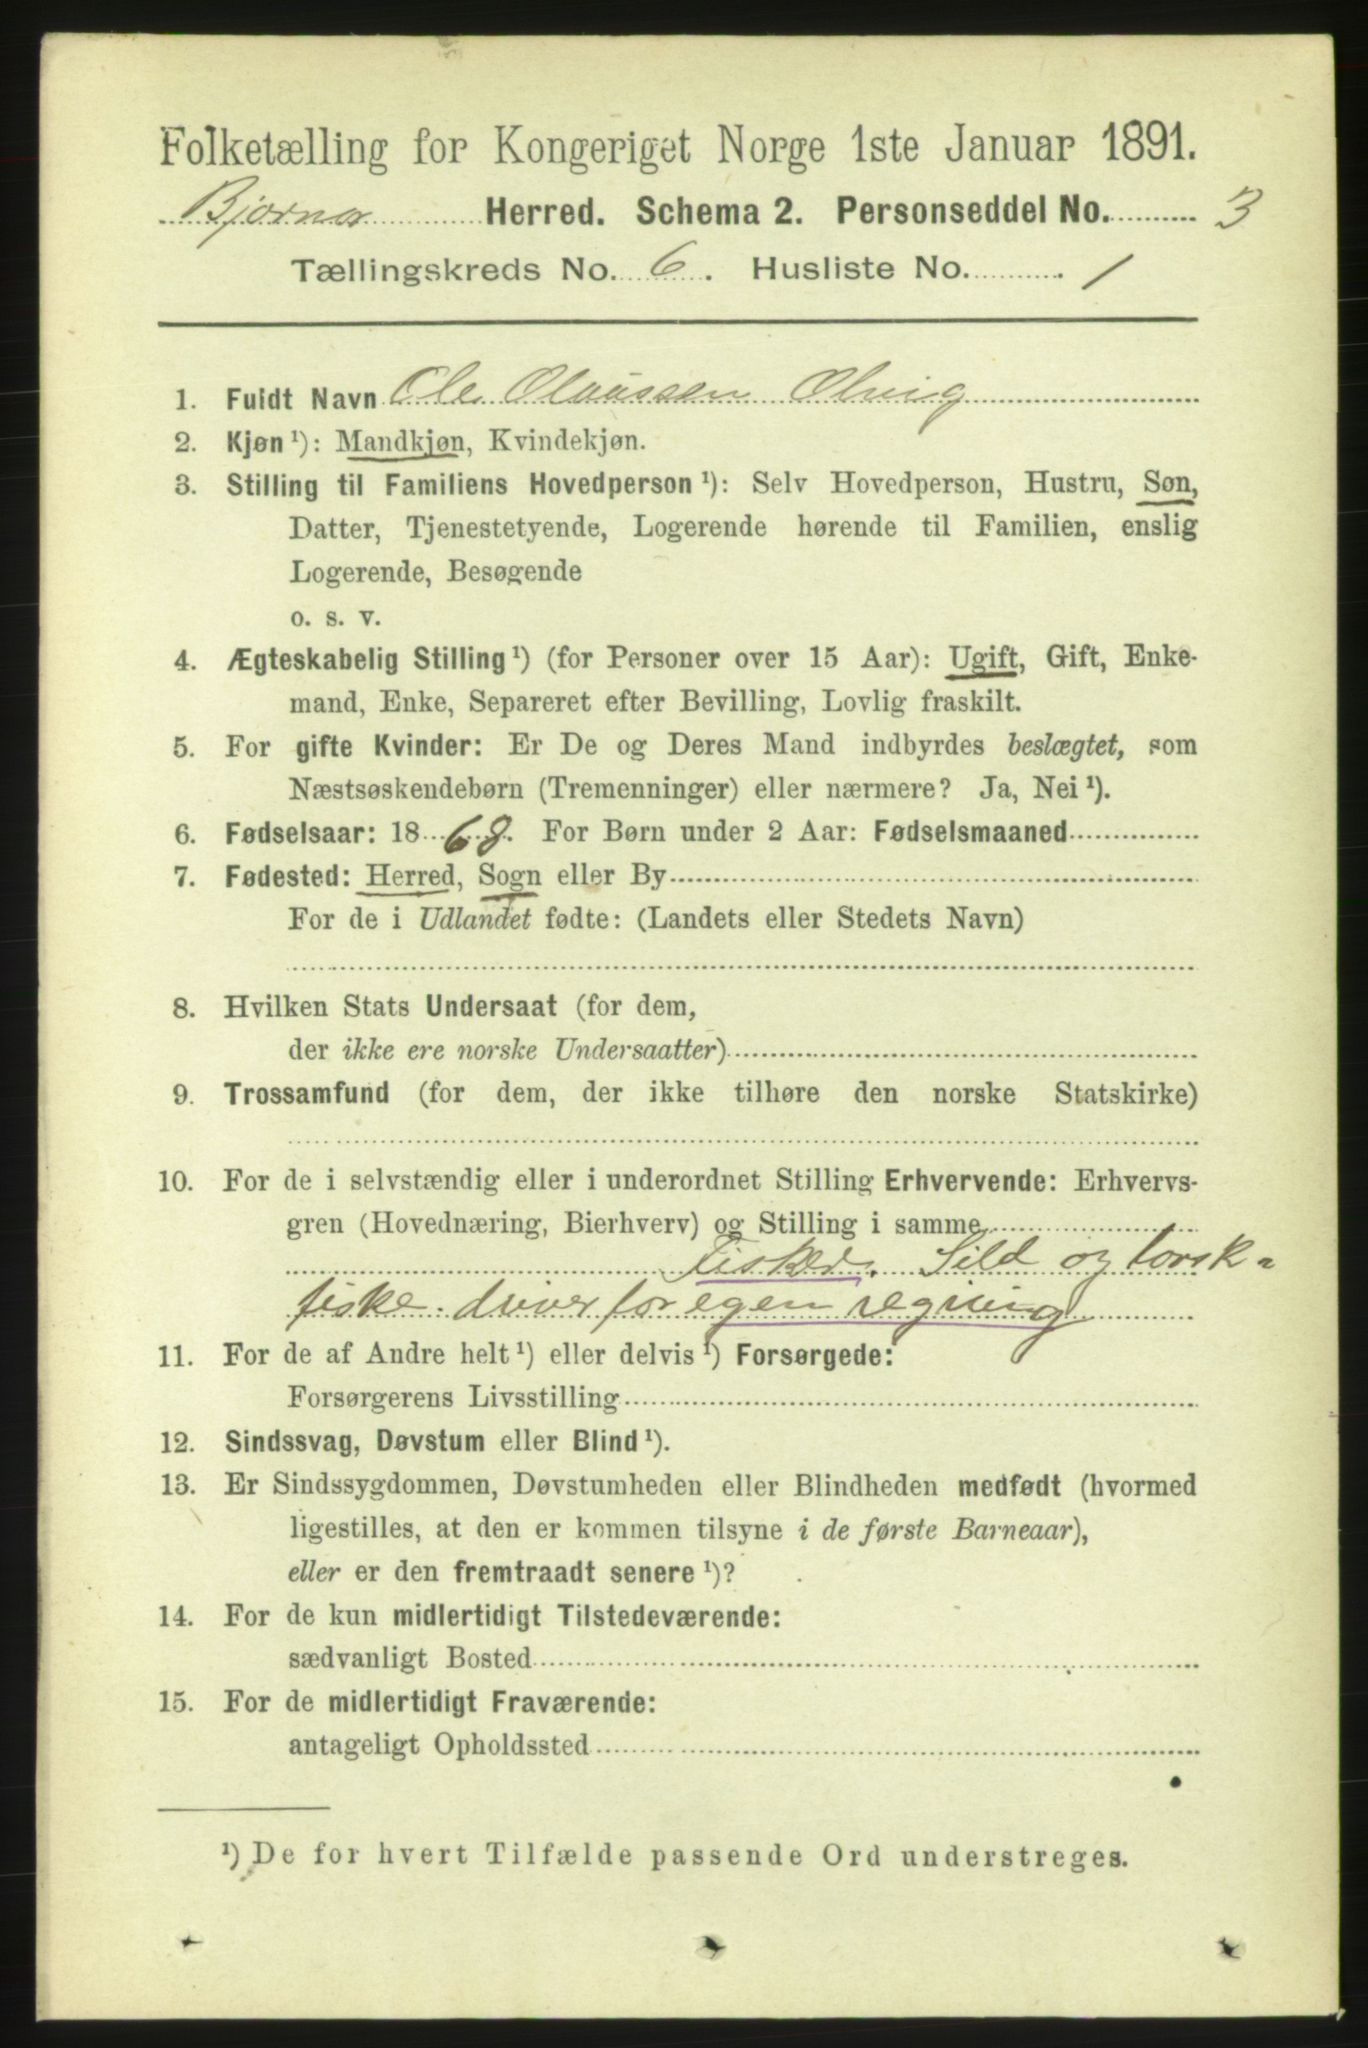 Folketælling for Kongeriget Norge 1ste Januar 1891.
Bjørnør Herred. Schema 2. Personseddel No. 3
Tællingskreds No. 6. Husliste No. 1
1. Fuldt Navn Ole Olaussen Olvig
2. Kjøn ¹): Mandkjøn, Kvindekjøn.
3. Stilling til Familiens Hovedperson ¹): Selv Hovedperson, Hustru, Søn,
Datter, Tjenestetyende, Logerende hørende til Familien, enslig
Logerende, Besøgende
o. s. v.
4. Ægteskabelig Stilling ¹) (for Personer over 15 Aar): Ugift, Gift, Enke-
mand, Enke, Separeret efter Bevilling, Lovlig fraskilt.
5. For gifte Kvinder: Er De og Deres Mand indbyrdes beslægtet, som
Næstsøskendebørn (Tremenninger) eller nærmere? Ja, Nei ¹).
6. Fødselsaar: 1868. For Børn under 2 Aar: Fødselsmaaned
7. Fødested: Herred, Sogn eller By
For de i Udlandet fødte: (Landets eller Stedets Navn)
8. Hvilken Stats Undersaat (for dem,
der ikke ere norske Undersaatter)
9. Trossamfund (for dem, der ikke tilhøre den norske Statskirke)
10. For de i selvstændig eller i underordnet Stilling Erhvervende: Erhvervs-
gren (Hovednæring, Bierhverv) og Stilling i samme
Fisker. Sild og torsk-
fiske. driver for egen regning
11. For de af Andre helt ¹) eller delvis ¹) Forsørgede:
Forsørgerens Livsstilling
12. Sindssvag, Døvstum eller Blind ¹).
13. Er Sindssygdommen, Døvstumheden eller Blindheden medfødt (hvormed
ligestilles, at den er kommen tilsyne i de første Barneaar),
eller er den fremtraadt senere ¹)?
14. For de kun midlertidigt Tilstedeværende:
sædvanligt Bosted
15. For de midlertidigt Fraværende:
antageligt Opholdssted
¹) De for hvert Tilfælde passende Ord understreges.